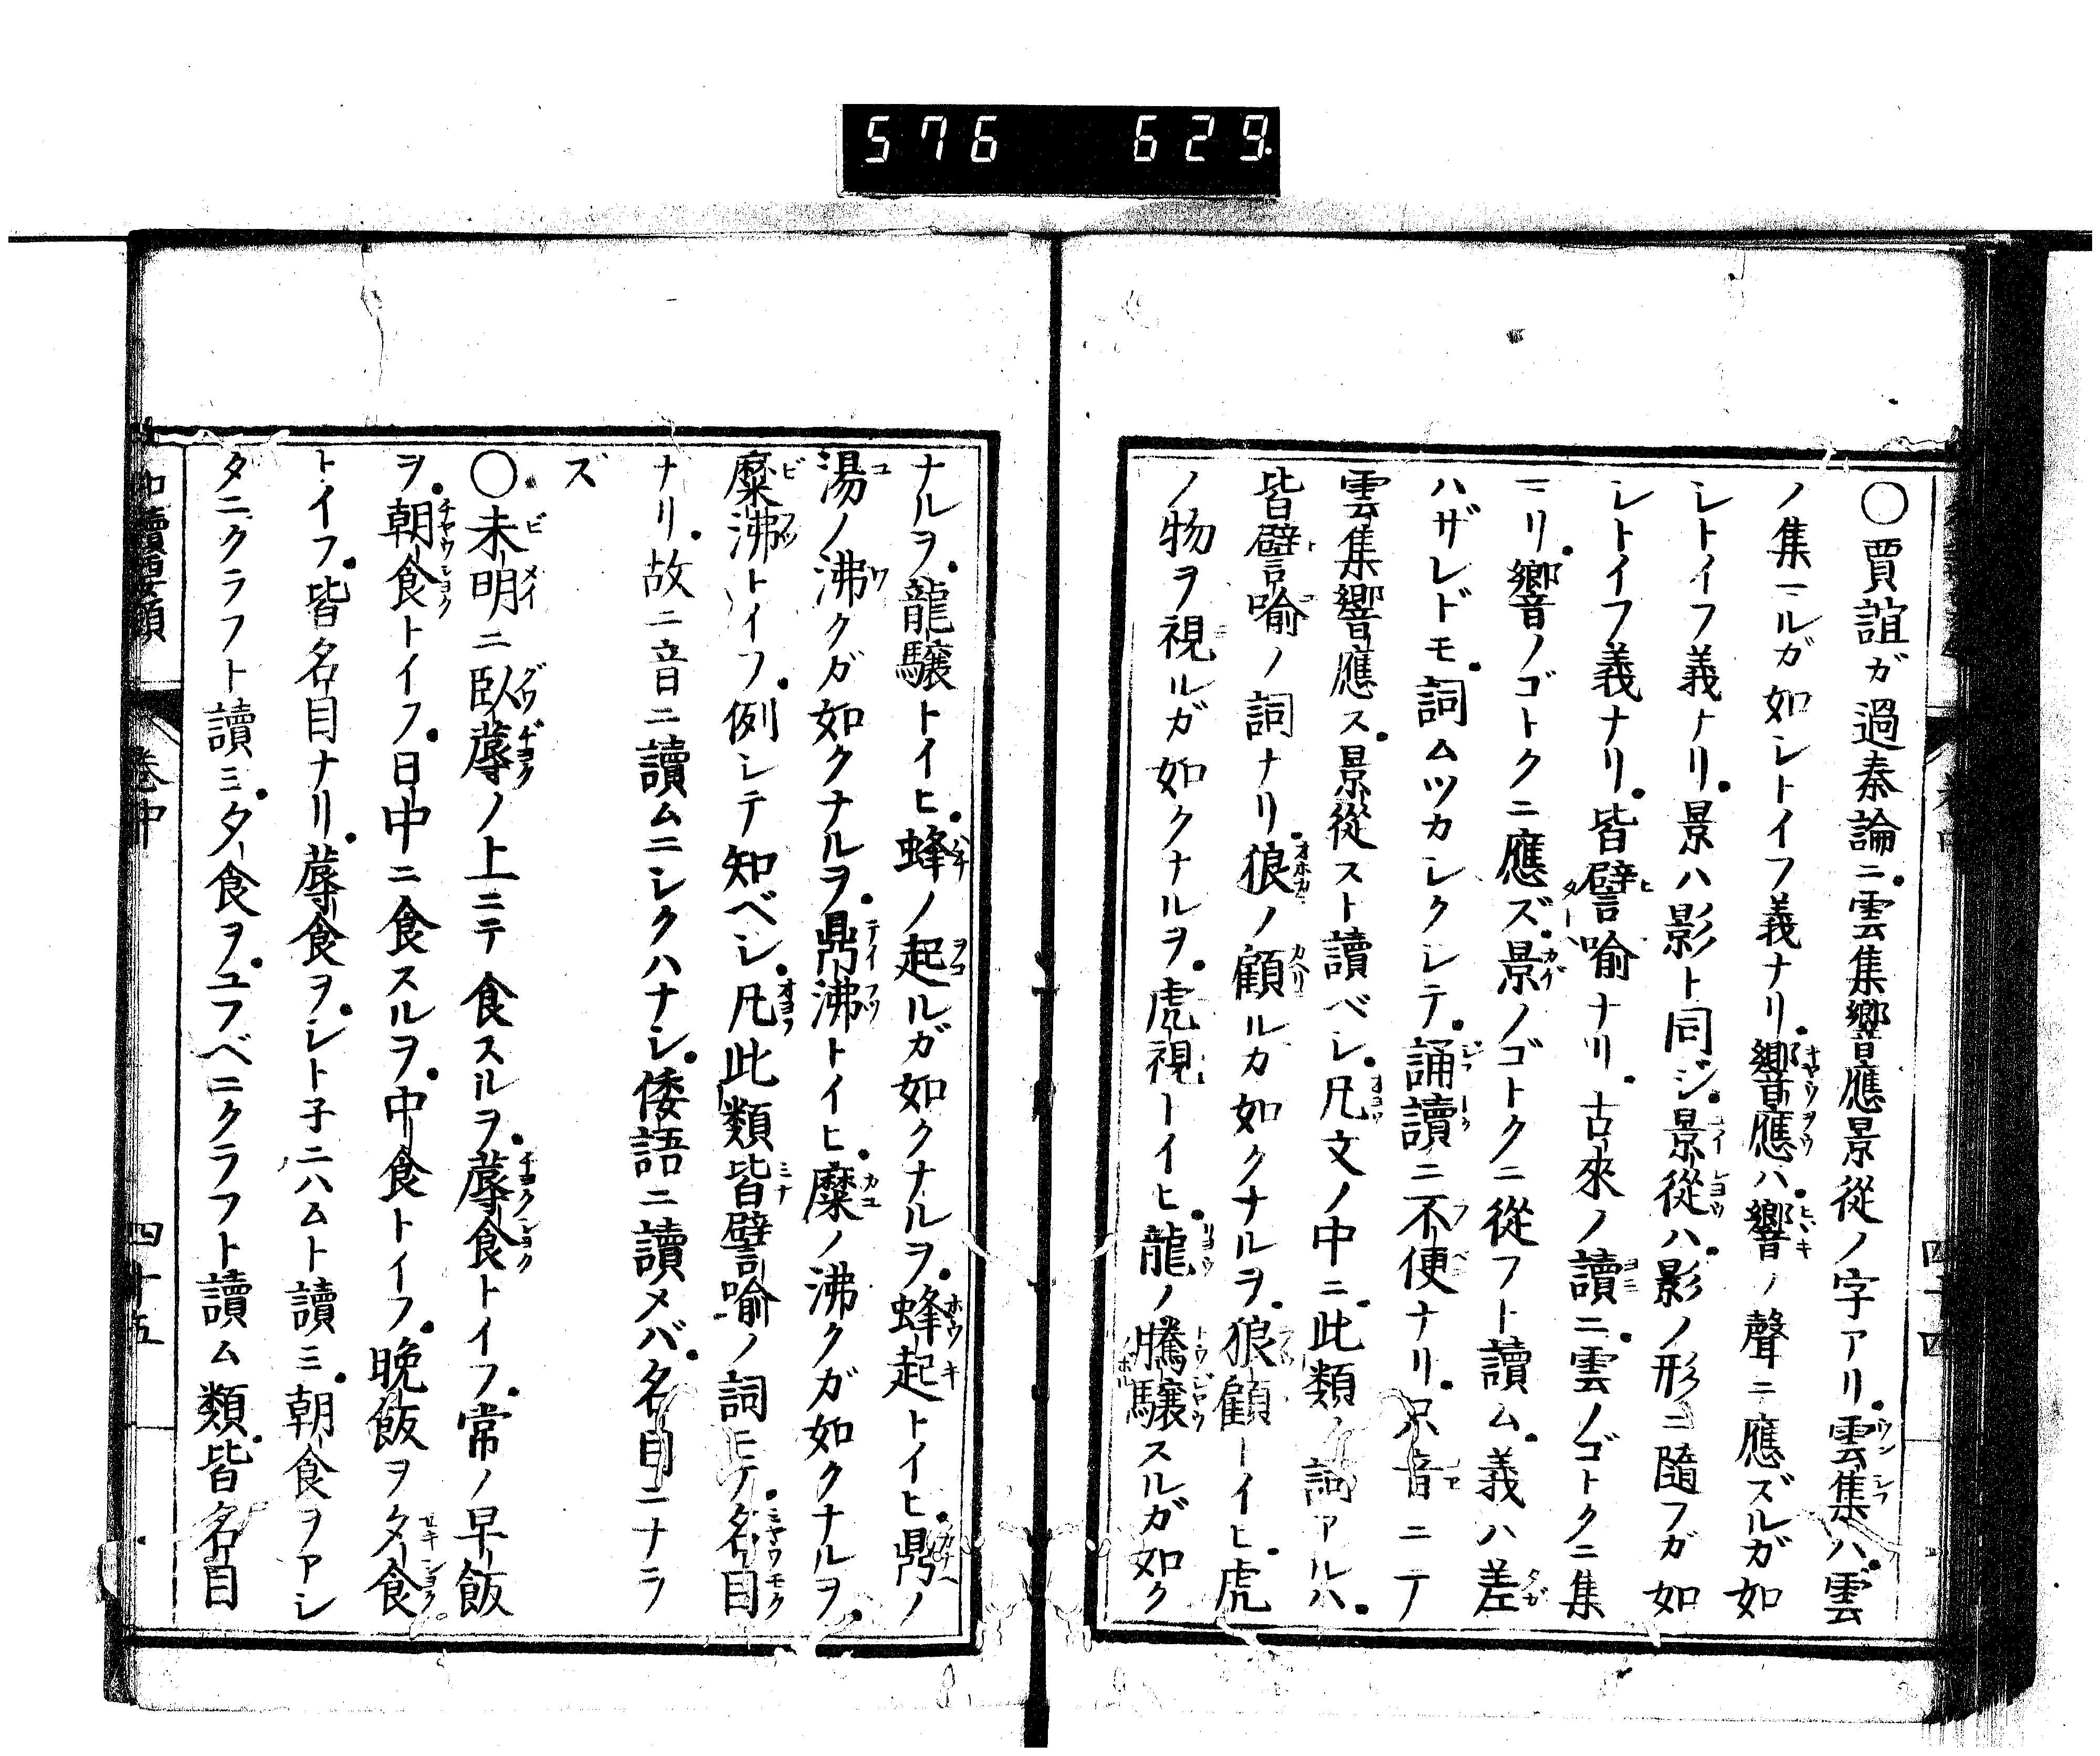 576 629
○賈誼ガ過秦論ニ雲集響應景從ノ字アリ雲集ハ雲
ノ集マルガ如シトイフ義ナリ響應ハ響ノ聲ニ應ズルガ如
シトイフ義ナリ景ハ影ト同ジ景從ハ影ノ形ニ隨フガ如
シトイフ義ナリ皆譬喻ナリ古來ノ讀ニ雲ノゴトクニ集
マリ響ノゴトクニ應ズ景ノゴトクニ從フト讀ム義ハ差
ハザレドモ詞ムツカシクシテ誦讀ニ不便ナリ只音ニテ
雲集響應ス景從スト讀ベシ凡文ノ中ニ此類ノ詞アルハ
皆譬喻ノ詞ナリ狼ノ顧ルカ如クナルヲ狼顧トイヒ虎
ノ物ヲ視ルガ如クナルヲ虎視トイヒ龍ノ騰驤スルガ如ク
四十四
ナルヲ龍驤トイヒ蜂ノ起ルガ如クナルヲ蜂起トイヒ鼎ノ
湯ノ沸クガ如クナルヲ鼎沸トイヒ糜ノ沸クガ如クナルヲ
糜沸トイフ例シテ知ベシ凡此類皆譬喻ノ詞ニテ名目
ナリ故ニ音ニ讀ムニシクハナシ倭語ニ讀メバ名目ニナラ
ズ
○未明ニ臥蓐ノ上ニテ食スルヲ蓐食トイフ常ノ早飯
ヲ朝食トイフ日中ニ食スルヲ中食トイフ晩飯ヲ夕食
トイフ皆名目ナリ蓐食ヲシト子ニハムト讀ミ朝食ヲアシ
タニクラフト讀ミ夕食ヲユフベニクラフト讀ム類皆名目
卷中
四十五